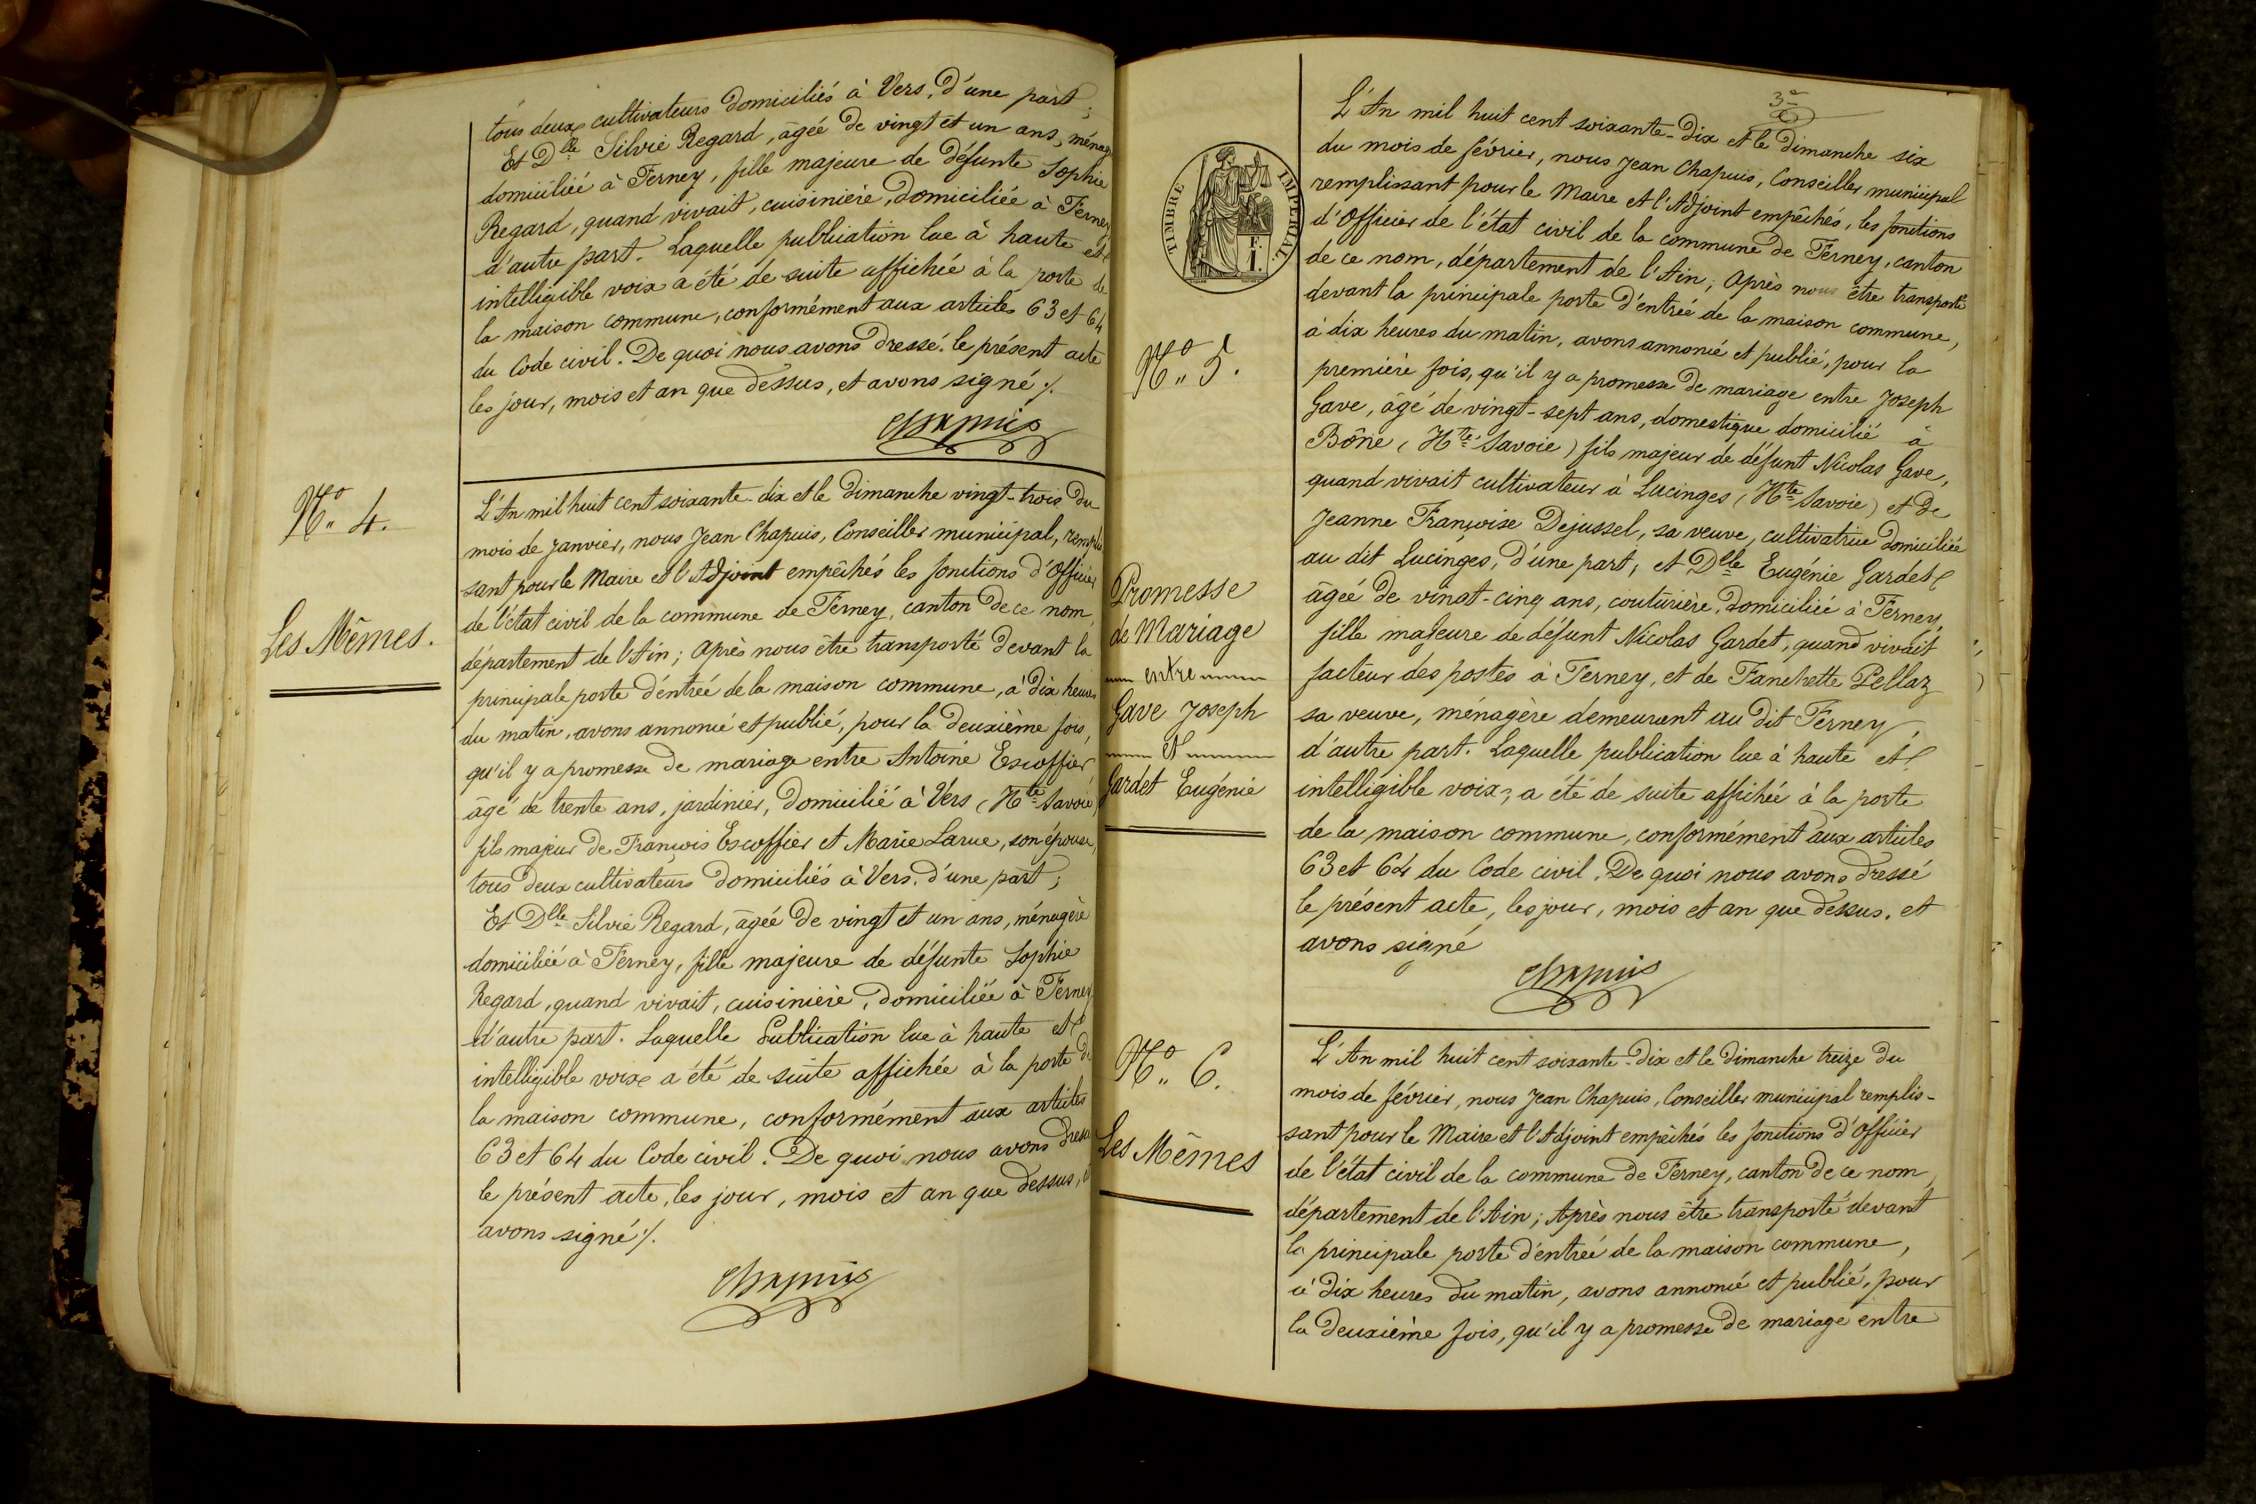 tous deux cultivateurs domiciliés à Vers, d'une part;
Et Dlle Silvie Regard, âgée de vingt et un ans, ménag
domiciliée à Ferney, fille majeure de défunte Sophie
Regard, quand vivait, cuisinière, domiciliée à Ferney
d'autre part. Laquelle publication lue à haute et
intelligible voix a été de suite affichée à la porte de
la maison commune, conformément aux articles 63 et 64
du Code civil. De quoi nous avons dressé le présent acte
les jour, mois et an que dessus, et avons signé ./.
Chapuis
No. 4.
Les Mêmes.
L'An mil huit cent soixante-dix et le dimanche vingt-trois du
mois de janvier, nous Jean Chapuis, Conseiller municipal, remplis
sant pour le Maire et l'Adjoint empêchés les fonctions d'Officier
de l'état civil de la commune de Ferney, canton de ce nom,
département de l'Ain; Après nous être transporté devant la
principale porte d'entrée de la maison commune, à dix heures
du matin, avons annoncé et publié, pour la deuxième fois,
qu'il y a promesse de mariage entre Antoine Escoffier,
âgé de trente ans, jardinier, domicilié à Vers (Hte Savoie)
fils majeur de François Escoffier et Marie Larue, son épouse,
tous deux cultivateurs domiciliés à Vers, d'une part;
Et Dlle Silvie Regard, âgée de vingt et un ans, ménagère
domiciliée à Ferney, fille majeure de défunte Sophie
Regard, quand vivait, cuisinière, domiciliée à Ferney
d'autre part. Laquelle Publication lue à haute et
intelligible voix a été de suite affichée à la porte de
la maison commune, conformément aux articles
63 et 64 du Code civil. De quoi nous avons dressé
le présent acte, les jour, mois et an que dessus, et
avons signé ./.
Chapuis
3e
TIMBRE IMPERIAL.
F.
1.
No. 5.
Promesse
de Mariage
entre
Gave Joseph
Et
Gardet Eugénie
L'An mil huit cent soixante-dix et le dimanche six
du mois de février, nous Jean Chapuis, Conseiller municipal
remplissant pour le Maire et l'Adjoint empêchés, les fonctions
d'Officier de l'état civil de la commune de Ferney, canton
de ce nom, département de l'Ain; Après nous être transporté
devant la principale porte d'entrée de la maison commune,
à dix heures du matin, avons annoncé et publié, pour la
première fois, qu'il y a promesse de mariage entre Joseph
Gave, âgé de vingt-sept ans, domestique domicilié à
Bône (Hte Savoie) fils majeur de défunt Nicolas Gave,
quand vivait cultivateur à Lucinges (Hte Savoie) et de
Jeanne Françoise Dejussel, sa veuve, cultivatrice domiciliée
au dit Lucinges, d'une part, et Dlle Eugénie Gardet
âgée de vingt-cinq ans, couturière, domiciliée à Ferney,
fille majeure de défunt Nicolas Gardet, quand vivait
facteur des postes à Ferney, et de Fanchette Pellaz
sa veuve, ménagère demeurant au dit Ferney,
d'autre part. Laquelle publication lue à haute et
intelligible voix, a été de suite affichée à la porte
de la maison commune, conformément aux articles
63 et 64 du Code civil. De quoi nous avons dressé
le présent acte, les jour, mois et an que dessus, et
avons signé
Chapuis
No. 6.
Les Mêmes
L'An mil huit cent soixante-dix et le dimanche treize du
mois de février, nous Jean Chapuis, Conseiller municipal remplis-
sant pour le Maire et l'Adjoint empêchés les fonctions d'Officier
de l'état civil de la commune de Ferney, canton de ce nom,
département de l'Ain; Après nous être transporté devant
la principale porte d'entrée de la maison commune,
à dix heures du matin, avons annoncé et publié, pour
la deuxième fois, qu'il y a promesse de mariage entre